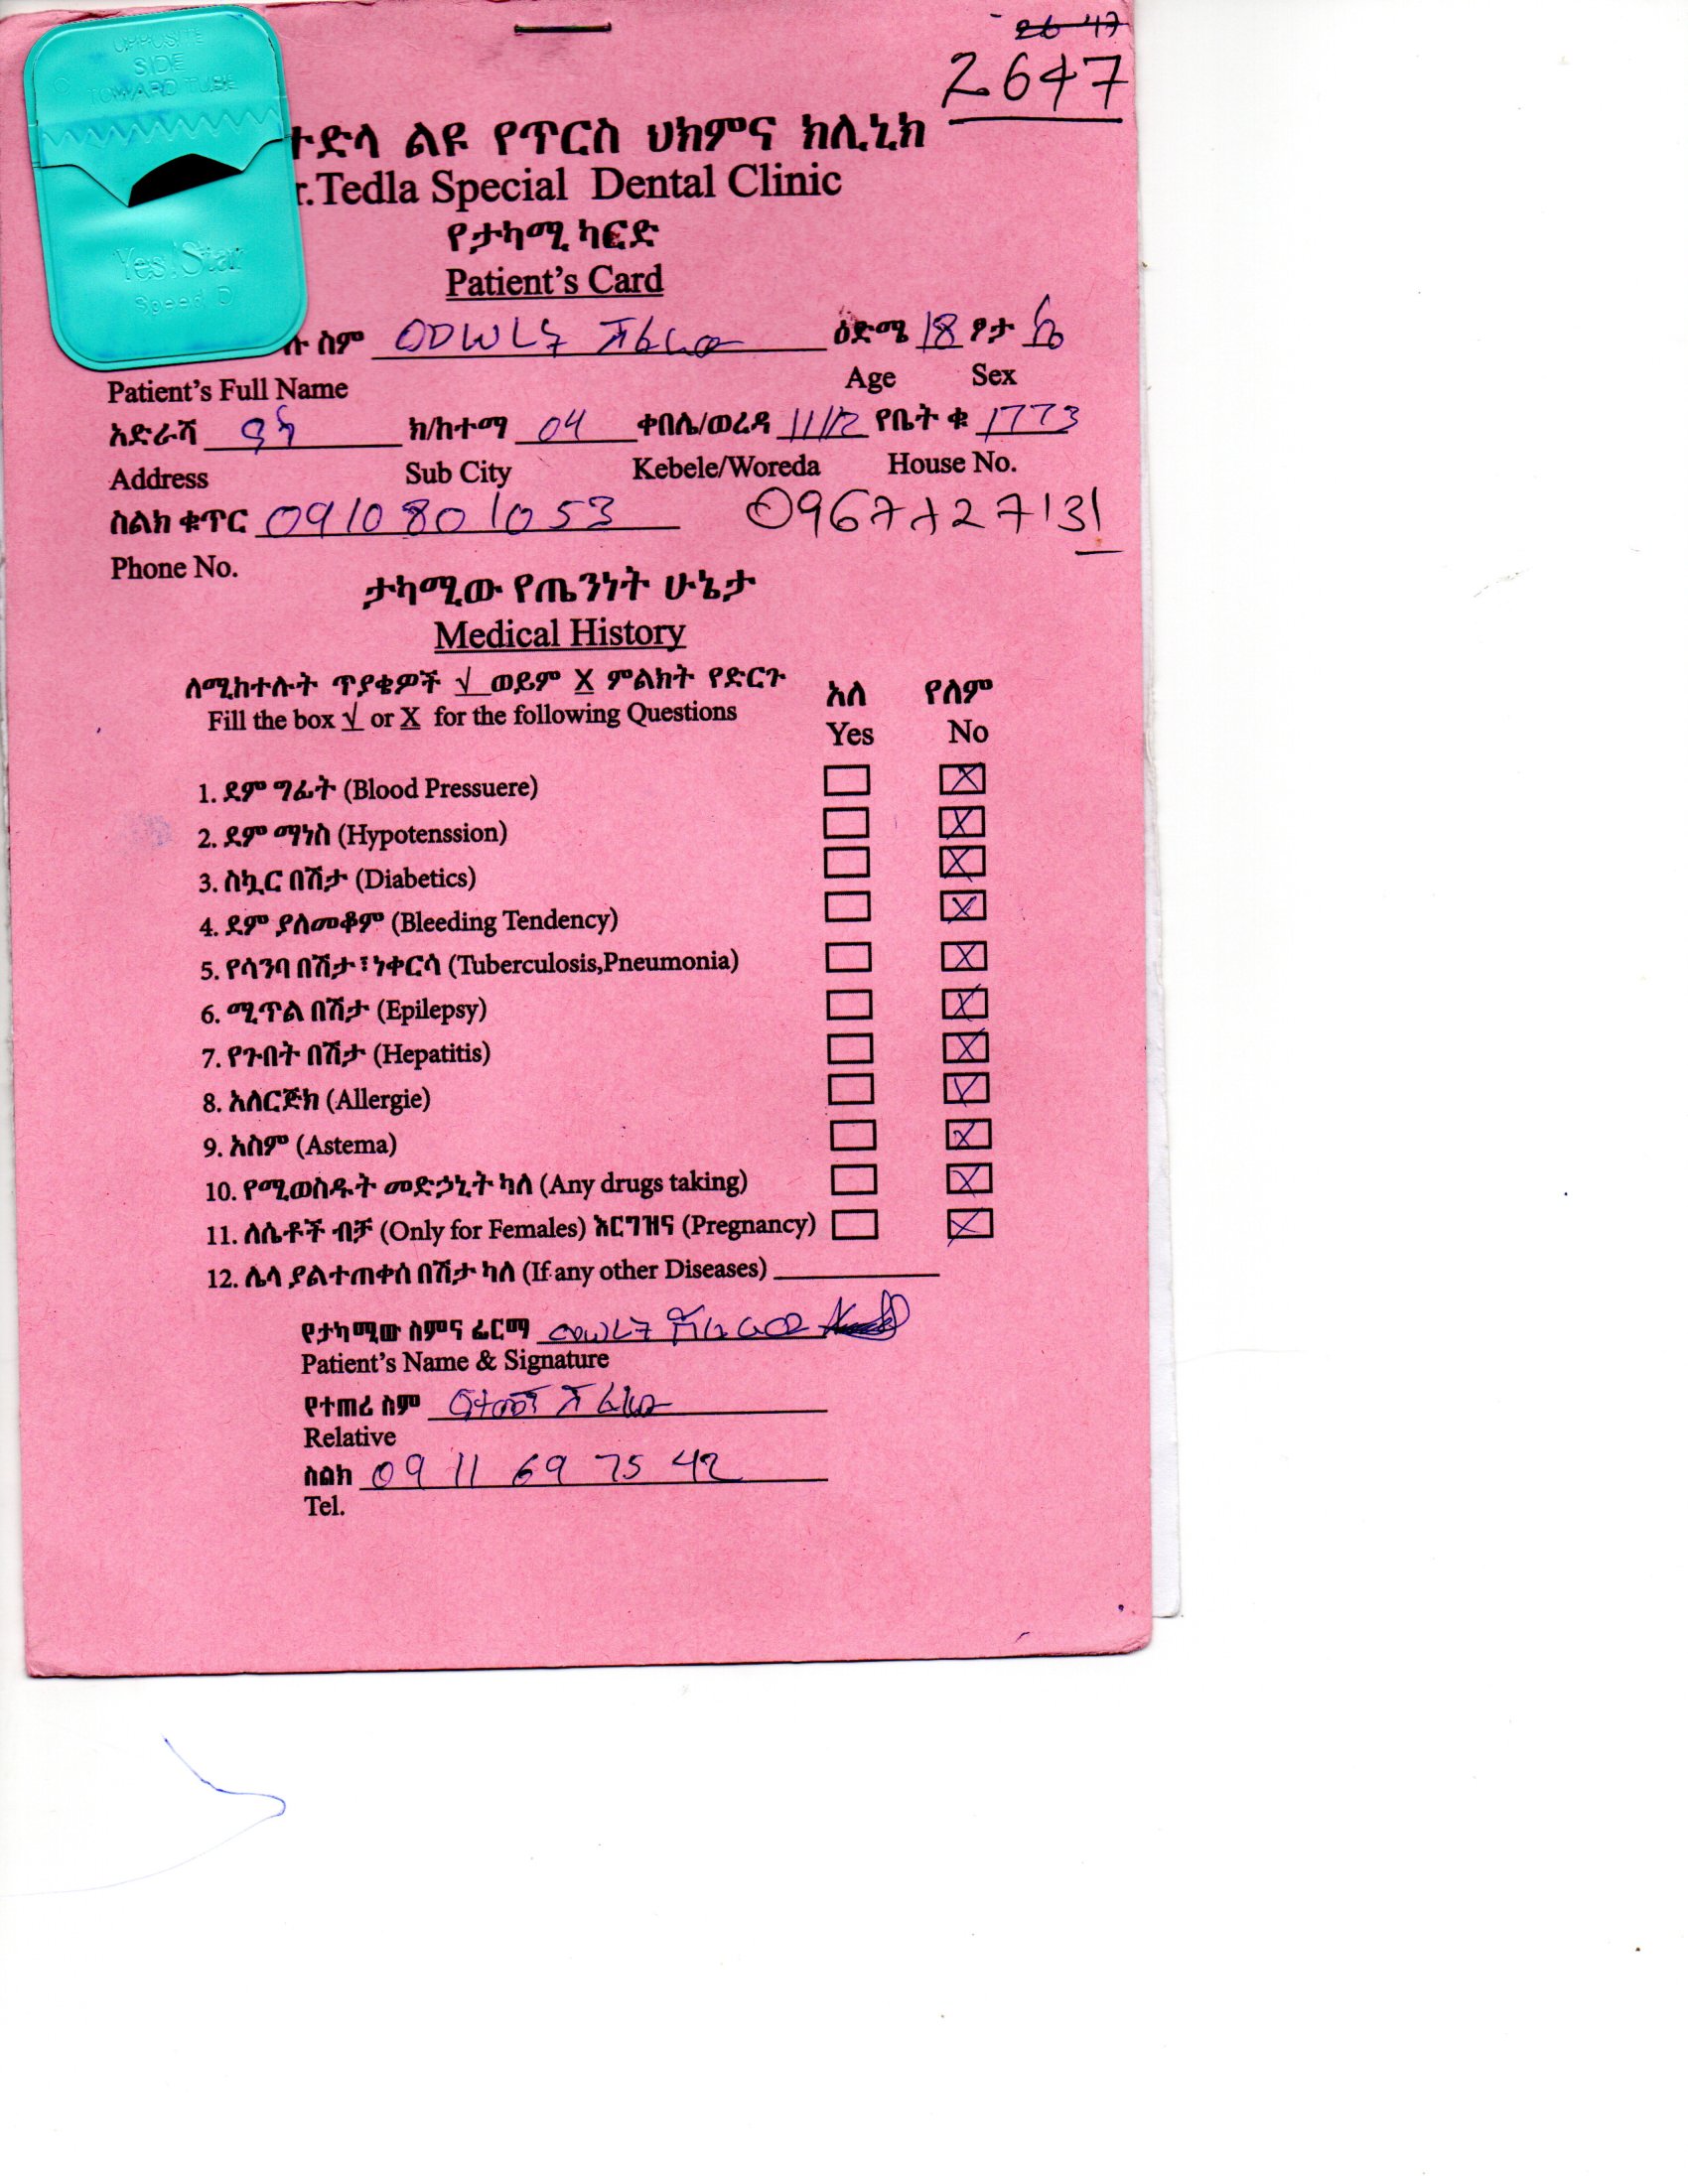 2647
2647
OPPOSITE
SIDE
TOWARD TUBE
Yes!Star
Speed D
ተድላ ልዩ የጥርስ ህክምና ክሊኒክ
r.Tedla Special Dental Clinic
የታካሚ ካርድ
Patient's Card
ሉ ስም ዕድሜ 18 ፆታ ሴ
Patient's Full Name Age Sex
አድራሻ የካ ክ/ከተማ 04 ቀበሌ/ወረዳ 11/12 የቤት ቁ 1773
Address Sub City Kebele/Woreda House No.
ስልክ ቁጥር 0910801053 0967727131
Phone No.
ታካሚው የጤንነት ሁኔታ
Medical History
ለሚከተሉት ጥያቄዎች √ ወይም X ምልክት የድርጉ አለ የለም
Fill the box √ or X for the following Questions Yes No
1. ደም ግፊት (Blood Pressuere) X
2. ደም ማነስ (Hypotenssion) X
3. ስኳር በሽታ (Diabetics) X
4. ደም ያለመቆም (Bleeding Tendency) X
5. የሳንባ በሽታ፣ነቀርሳ (Tuberculosis,Pneumonia) X
6. ሚጥል በሽታ (Epilepsy) X
7. የጉበት በሽታ (Hepatitis) X
8. አለርጅክ (Allergie) X
9. አስም (Astema) X
10. የሚወስዱት መድኃኒት ካለ (Any drugs taking) X
11. ለሴቶች ብቻ (Only for Females) እርግዝና (Pregnancy) X
12. ሌላ ያልተጠቀሰ በሽታ ካለ (If any other Diseases)
የታካሚው ስምና ፊርማ
Patient's Name & Signature
የተጠሪ ስም
Relative
ስልክ 09 11 69 75 42
Tel.